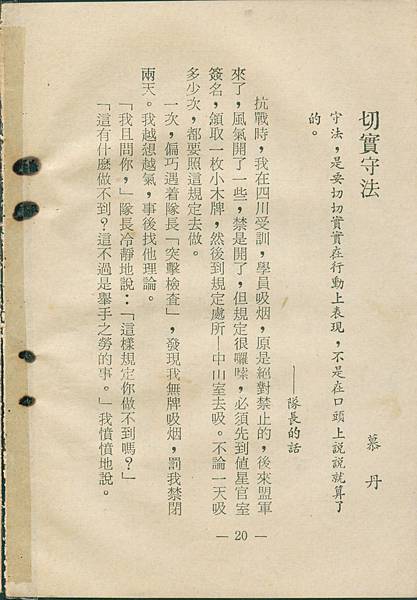 切實守法
慕丹
守法，是要切切實實在行動上表現，不是在口頭上說說就算了
的。
——隊長的話
抗戰時，我在四川受訓，學員吸烟，原是絕對禁止的，後來盟軍
來了，風氣開了一些，禁是開了，但規定很囉嗦，必須先到值星官室
簽名，領取一枚小木牌，然後到規定處所—中山室去吸。不論一天吸
多少次，都要照這規定去做。
一次，偏巧遇着隊長「突擊檢查」，發現我無牌吸烟，罰我禁閉
兩天。我越想越氣，事後找他理論。
「我且問你，」隊長冷靜地說：「這樣規定你做不到嗎？」
「這有什麼做不到？這不過是舉手之勞的事。」我憤憤地說。
— 20 —